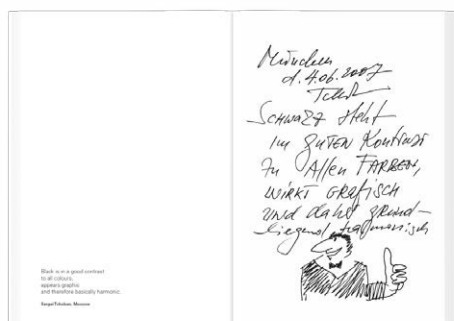 Black is in a good contrast
to all colours,
appears graphic
and therefore basically harmonic.
Sergei Tchoban, Moscow
München
d. 4.06.2007
Schwarz steht
im guten Kontrast
zu Allen FARBEN,
wirkt grafisch
und daher grund-
liegend harmonisch